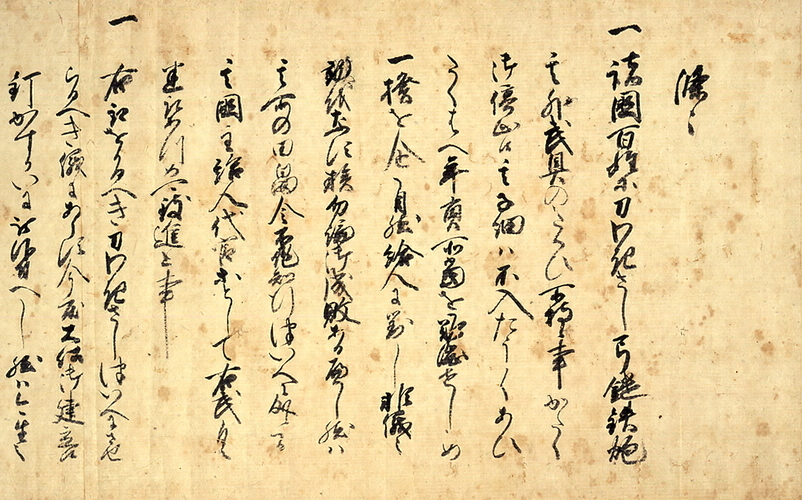 條々
一諸國百姓等刀わきさし弓鑓鉄炮
其外武具のたくひ所持候事かたく
御停止候其子細ハ不入たうくあひ
たくハへ年貢所當を難渋せしめ
一揆を企自然給人に對し非儀之
族勿論御成敗あるへし然ハ
其所の田畠令不作知行ついへ
其國主給人代官として右武具
悉取 可致進上事
一右取をかるへき刀わきさしついへにさせ
らるへき儀にあらす今度大仏御建立
釘かすかいに被仰付へし然ハ今生之